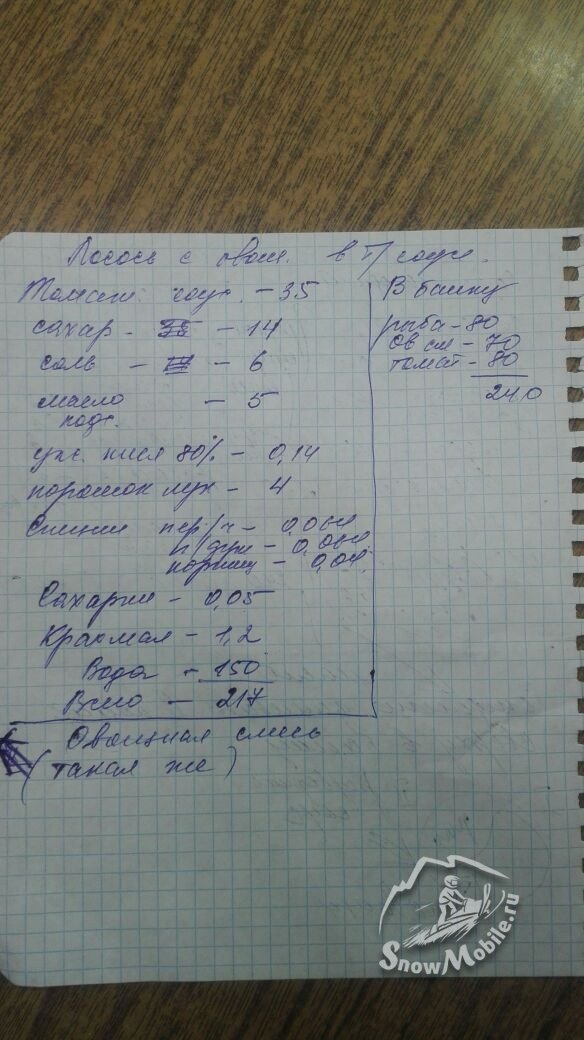 Лосось с овощ. в т/соусе.
Томатн. соус. - 35
сахар - 14
соль - 6
масло - 5
подс.
укс. кисл 80% - 0,14
порошок лук - 4
Специи пер/ч - 0,064
п/душ - 0,064
кориц - 0,04
Сахарин - 0,05
Крахмал - 1,2
Вода - 150
Всего - 217
Овощная смесь
(такая же)
В банку
рыба - 80
Ов см - 70
томат - 80
240
SnowMobile.ru